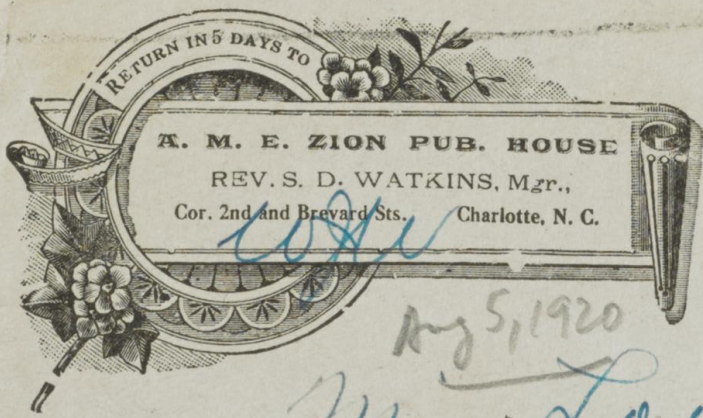 RETURN IN 5 DAYS TO
A. M. E. ZION PUB. HOUSE
REV. S. D. WATKINS, Mgr.,
Cor. 2nd and Brevard Sts. Charlotte, N. C.
Aug 5, 1920